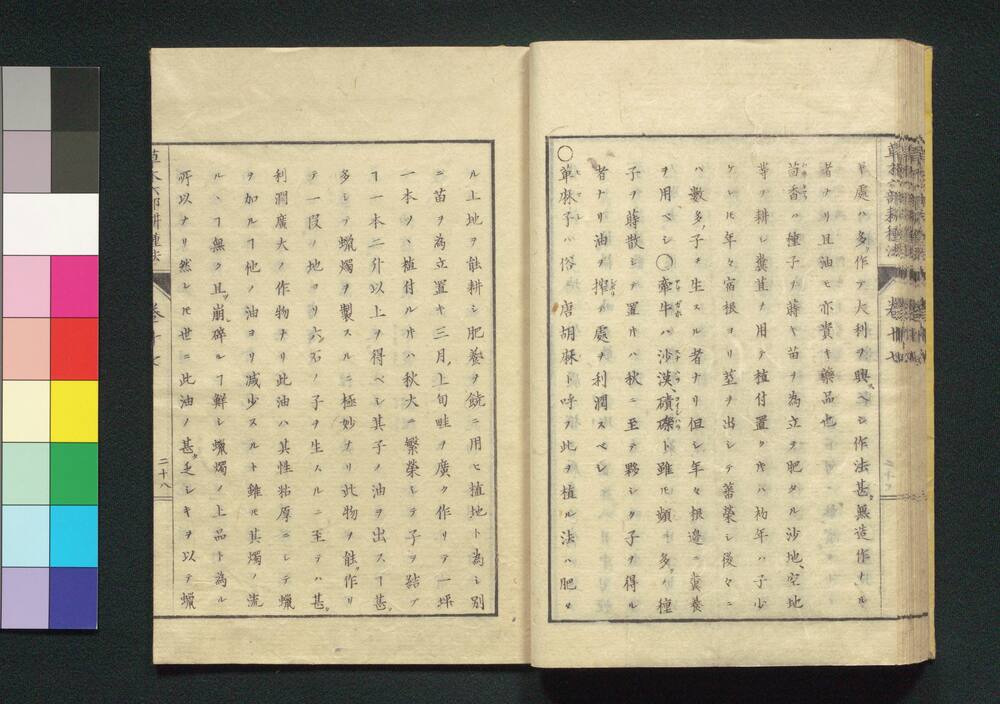 キ處ハ多ク作テ大利ヲ興スベシ作法甚タ無造作ナル
者ナリ且油モ亦貴キ藥品也
茴香ハ種子ヲ蒔キ苗ヲ為立ヲ肥タル沙地、空地
等ヲ耕シ糞苴ヲ用テ植付置クキハ初年ハ子少
ケレ𪜈年々宿根ヨリ莖ヲ出シテ蕃榮シ後々ニ
ハ數多ノ子ヲ生スル者ナリ但シ年々根邊ニ糞養
ヲ用ベシ〇牽牛ハ沙漠、磧礫ト雖𪜈頗ル多ク種
子ヲ蒔散シテ置𪜈ハ秋ニ至テ夥シク子ヲ得ル
者ナリ油ヲ搾テ處ヲ利潤スベシ
〇萆麻子ハ俗ニ唐胡麻ト呼ヲ此ヲ植ル法ハ肥タ
ル上地ヲ能耕シ肥養ヲ饒ニ用ヒ植地ト為シ別
ニ苗ヲ為立置キ三月上旬畦ヲ廣ク作リテ一坪
一本ツヽ植付ル𪜈ハ秋大ニ繁榮シテ子ヲ結フ
ヿ一本二升以上ヲ得ベシ其子ノ油ヲ出スヿ甚タ
多シテ蠟燭ヲ製スルニ極妙ナリ此物ヲ能ク作リ
テ一段ノ地ヨリ六石ノ子ヲ生スルニ至テハ甚タ
利潤廣大ノ作物ナリ此油ハ其性粘厚ニシテ蠟
ヲ加ルヿ他ノ油ヨリ減少スルト雖𪜈其燭ノ流
ルヽヿ無ク且ツ崩碎ルヿ鮮シ蠟燭ノ上品ト為ル
所以ナリ然レ𪜈世ニ此油ノ甚タ乏シキヲ以テ蠟
草木六部耕種法
卷十七
二十八